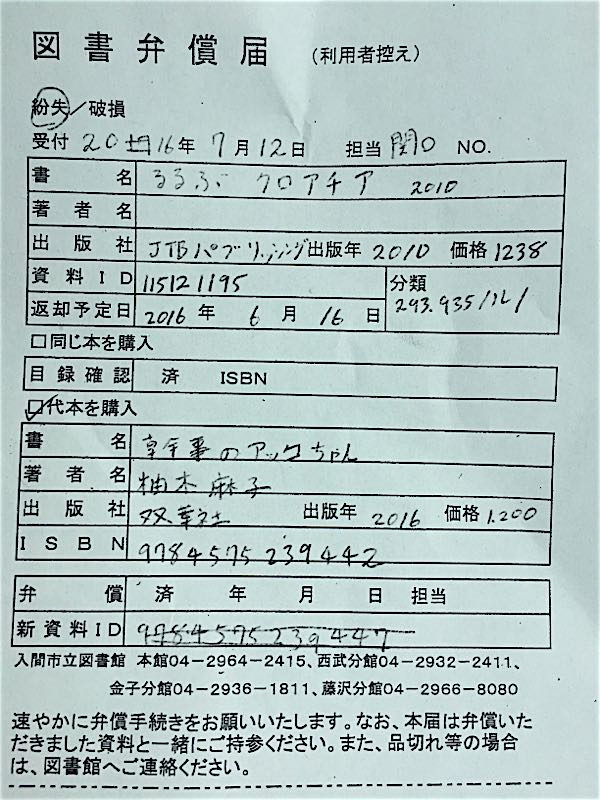 図書弁償届 (利用者控え)
紛失/破損
受付 2016年 7月12日 担当 関口 NO.
書名 るるぶ クロアチア 2010
著者名
出版社 JTBパブリッシング 出版年 2010 価格 1238
資料ID 115121195 分類
293.935/ル/
返却予定日 2016年 6月 16日
□同じ本を購入
目録確認 済 ISBN
□代本を購入
書名 幹事のアッコちゃん
著者名 柚木麻子
出版社 双葉社 出版年 2016 価格 1,200
ISBN 9784575239442
弁償 済 年 月 日 担当
新資料ID 9784575239447
入間市立図書館 本館04-2964-2415、西武分館04-2932-2411、
金子分館04-2936-1811、藤沢分館04-2966-8080
速やかに弁償手続きをお願いいたします。なお、本届は弁償いた
だきました資料と一緒にご持参ください。また、品切れ等の場合
は、図書館へご連絡ください。